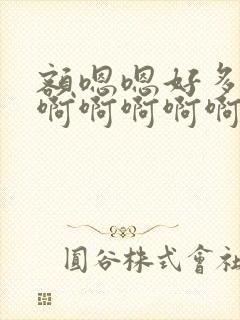 额嗯嗯好多
啊啊啊啊啊
圓谷株式會社